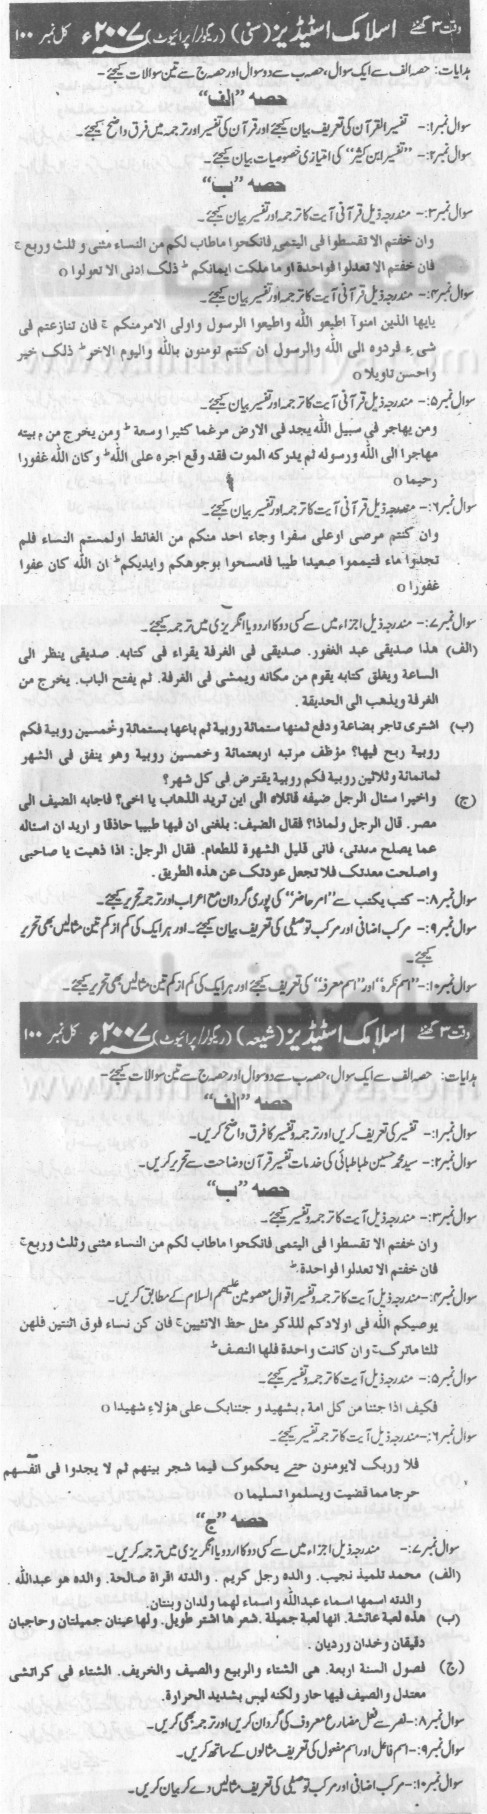 وقت ۳ گھنٹے اسلامک اسٹیڈیز (سنی) (ریگولر/پرائیوٹ) ۲۰۰۷ء کل نمبر ۱۰۰
ہدایات: حصہ الف سے ایک سوال، حصہ ب سے دو سوال اور حصہ ج سے تین سوالات کیجئے۔
حصہ "الف"
سوال نمبر۱:- تفسیر القرآن کی تعریف بیان کیجئے اور قرآن کی تفسیر اور ترجمہ میں فرق واضح کیجئے۔
سوال نمبر۲:- "تفسیر ابن کثیر" کی امتیازی خصوصیات بیان کیجئے۔
حصہ "ب"
سوال نمبر۳:- مندرجہ ذیل قرآنی آیت کا ترجمہ اور تفسیر بیان کیجئے۔
وان خفتم الا تقسطوا فی الیتمی فانکحوا ماطاب لکم من النساء مثنی و ثلث وربع ج
فان خفتم الا تعدلوا فواحدة او ما ملکت ایمانکم ط ذلک ادنی الا تعولوا o
سوال نمبر۴:- مندرجہ ذیل قرآنی آیت کا ترجمہ اور تفسیر بیان کیجئے۔
یایها الذین امنوآ اطیعو الله واطیعوا الرسول واولی الامرمنکم ج فان تنازعتم فی
شیء فردوه الی الله والرسول ان کنتم تومنون بالله والیوم الاخر ط ذلک خیر
واحسن تاویلا o
سوال نمبر۵:- مندرجہ ذیل قرآنی آیت کا ترجمہ اور تفسیر بیان کیجئے۔
ومن یهاجر فی سبیل الله یجد فی الارض مرغما کثیرا وسعة ط ومن یخرج من م بیته
مهاجرا الی الله ورسوله ثم یدرکه الموت فقد وقع اجره علی الله ط وکان الله غفورا
رحیما o
سوال نمبر۶:- مندرجہ ذیل قرآنی آیت کا ترجمہ اور تفسیر بیان کیجئے۔
وان کنتم مرضی اوعلی سفرا وجاء احد منکم من الغائط اولمستم النساء فلم
تجدوا ماء فتیمموا صعیدا طیبا فامسحوا بوجوهکم وایدیکم ط ان الله کان عفوا
غفورا o
سوال نمبر۷:- مندرجہ ذیل اجزاء میں سے کسی دو کا اردو یا انگریزی میں ترجمہ کیجئے۔
(الف) هذا صدیقی عبد الغفور. صدیقی فی الغرفة یقراء فی کتابه. صدیقی ینظر الی
الساعة ویغلق کتابه یقوم من مکانه ویمشی فی الغرفة. ثم یفتح الباب. یخرج من
الغرفة ویذهب الی الحدیقة.
(ب) اشتری تاجر بضاعة ودفع ثمنها ستمائة روبیة ثم باعها بستمائة وخمسین روبیة فکم
روبیة ربح فیها؟ مؤظف مرتبه اربعتمائة وخمسین روبیة وهو ینفق فی الشهر
ثمانمائة وثلاثین روبیة فکم روبیة یقترض فی کل شهر؟
(ج) واخیرا سئال الرجل ضیفه قائلاه الی این ترید الذهاب یا اخی؟ فاجابه الضیف الی
مصر. قال الرجل ولماذا؟ فقال الضیف: بلغنی ان فیها طبیبا حاذقا و ارید ان اسئاله
عما یصلح معدتی، فانی قلیل الشهوة للطعام. فقال الرجل: اذا ذهبت یا صاحبی
واصلحت معدتک فلا تجعل عودتک عن هذه الطریق.
سوال نمبر۸:- کتب یکتب سے "امر حاضر" کی پوری گردان مع اعراب اور ترجمہ تحریر کیجئے۔
سوال نمبر۹:- مرکب اضافی اور مرکب توصیفی کی تعریف بیان کیجئے۔ اور ہر ایک کی کم از کم تین مثالیں بھی تحریر
کیجئے۔
سوال نمبر۱۰:- "اسم نکرہ" اور "اسم معرفہ" کی تعریف کیجئے اور ہر ایک کی کم از کم تین مثالیں بھی تحریر کیجئے۔
وقت ۳ گھنٹے اسلامک اسٹیڈیز (شیعہ) (ریگولر/پرائیوٹ) ۲۰۰۷ء کل نمبر ۱۰۰
ہدایات: حصہ الف سے ایک سوال، حصہ ب سے دو سوال اور حصہ ج سے تین سوالات کیجئے۔
حصہ "الف"
سوال نمبر۱:- تفسیر کی تعریف کریں اور ترجمہ و تفسیر کا فرق واضح کریں۔
سوال نمبر۲:- سید محمد حسین طباطبائی کی خدمات تفسیر قرآن وضاحت سے تحریر کریں۔
حصہ "ب"
سوال نمبر۳:- مندرجہ ذیل آیت کا ترجمہ و تفسیر کیجئے۔
وان خفتم الا تقسطوا فی الیتمی فانکحوا ماطاب لکم من النساء مثنی وثلث وربع ج
فان خفتم الا تعدلوا فواحدة ط
سوال نمبر۴:- مندرجہ ذیل آیت کا ترجمہ و تفسیر اقوال معصومین علیہم السلام کے مطابق کریں۔
یوصیکم الله فی اولادکم للذکر مثل حظ الانثیین ج فان کن نساء فوق اثنتین فلهن
ثلثا ماترک ج وان کانت واحدة فلها النصف ط
سوال نمبر۵:- مندرجہ ذیل آیت کا ترجمہ و تفسیر کیجئے۔
فکیف اذا جئنا من کل امة م بشهید و جئنابک علی هؤلاءِ شهیدا o
سوال نمبر۶:- مندرجہ ذیل آیت کا ترجمہ تفسیر کیجئے۔
فلا وربک لایومنون حتے یحکموک فیما شجر بینهم ثم لا یجدوا فی انفسهم
حرجا مما قضیت ویسلموا تسلیما o
حصہ "ج"
سوال نمبر۷:- مندرجہ ذیل اجزاء میں سے کسی دو کا اردو یا انگریزی میں ترجمہ کریں۔
(الف) محمد تلمیذ نجیب. والده رجل کریم. والدته اقراة صالحة. والده هو عبدالله.
والدته اسمها اسماء عبدالله واسماء لهما ولدان وبنتان.
(ب) هذه لعبة عائشة. انها لعبة جمیلة. شعرها اشتر طویل. ولها عینان جمیلتان وحاجبان
دقیقان وخدان وردیان.
(ج) فصول السنة اربعة. هی الشتاء والربیع والصیف والخریف. الشتاء فی کراتشی
معتدل والصیف فیها حار ولکنه لیس بشدید الحرارة.
سوال نمبر۸:- نصر سے فعل مضارع معروف کی گردان کریں اور ترجمہ بھی کریں۔
سوال نمبر۹:- اسم فاعل اور اسم مفعول کی تعریف مثالوں کے ساتھ کریں۔
سوال نمبر۱۰:- مرکب اضافی اور مرکب توصیفی کی تعریف مثالیں دے کر بیان کریں۔